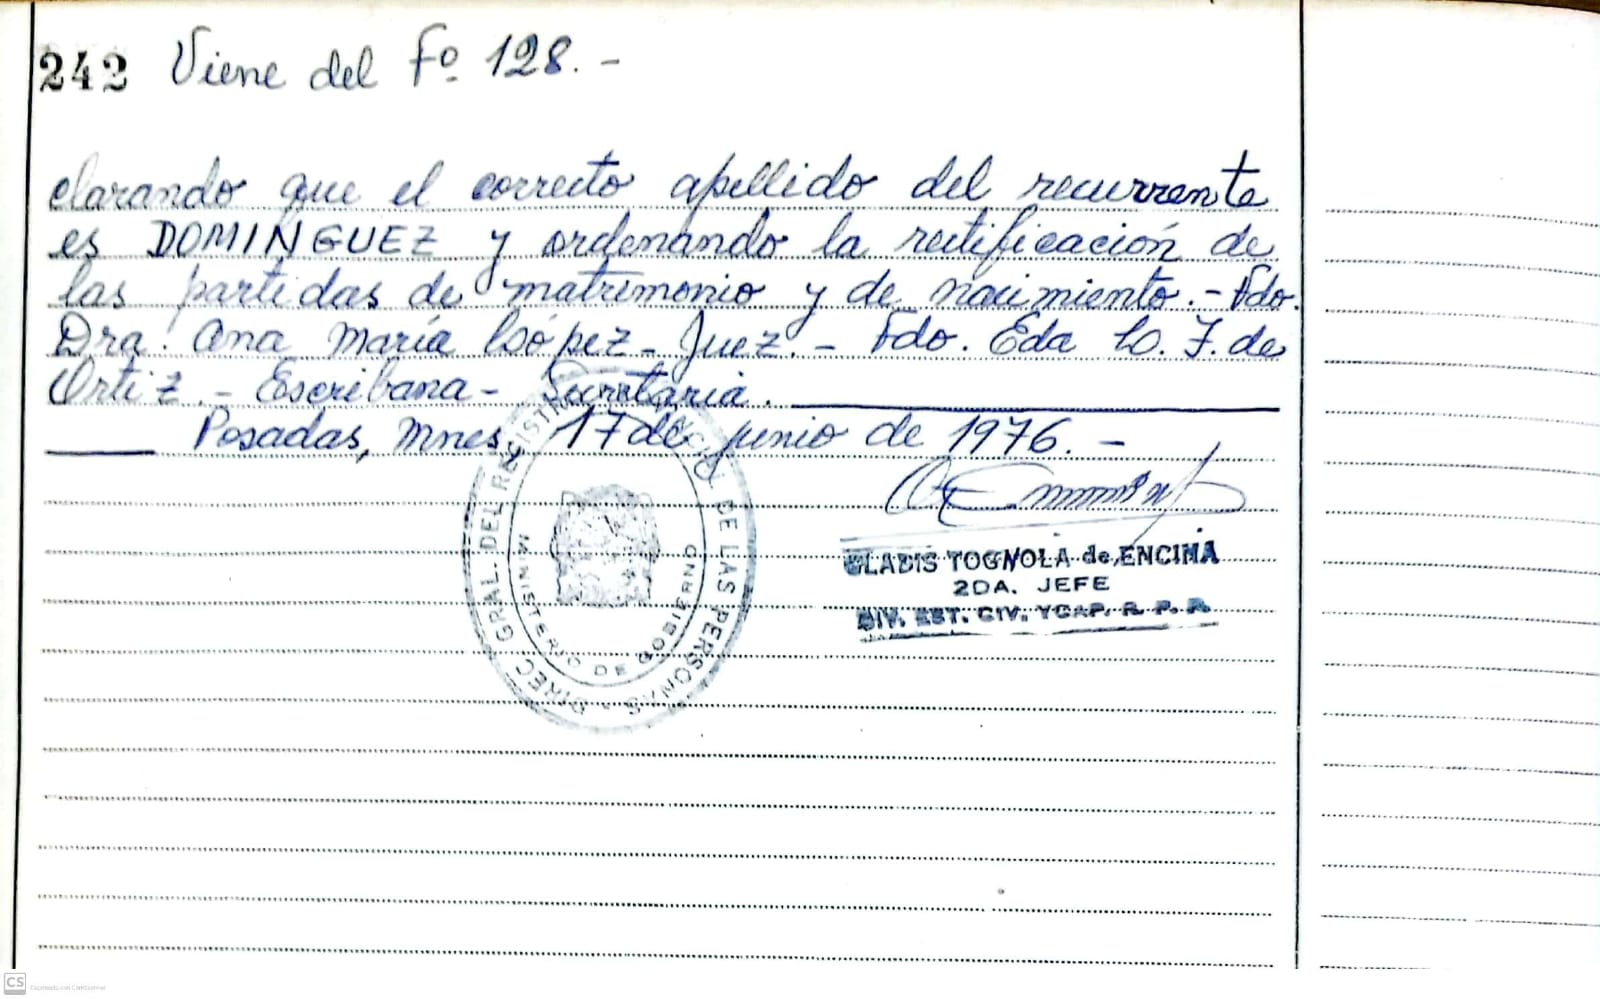 242 Viene del Fº 128.-
clarando que el correcto apellido del recurrente
es DOMINGUEZ y ordenando la rectificación de
las partidas de matrimonio y de nacimiento.- Fdo.
Dra. Ana María López - Juez.- Fdo. Eda L. F. de
Ortiz.- Escribana - Secretaria.
Posadas, Mnes, 17 de junio de 1976.-
DIREC. GRAL. DEL REGISTRO PROVINCIAL DE LAS PERSONAS
MINISTERIO DE GOBIERNO
GLADIS TOGNOLA de ENCINA
2DA. JEFE
DIV. EST. CIV. Y CAP. R. P. P.
CS Escaneado con CamScanner